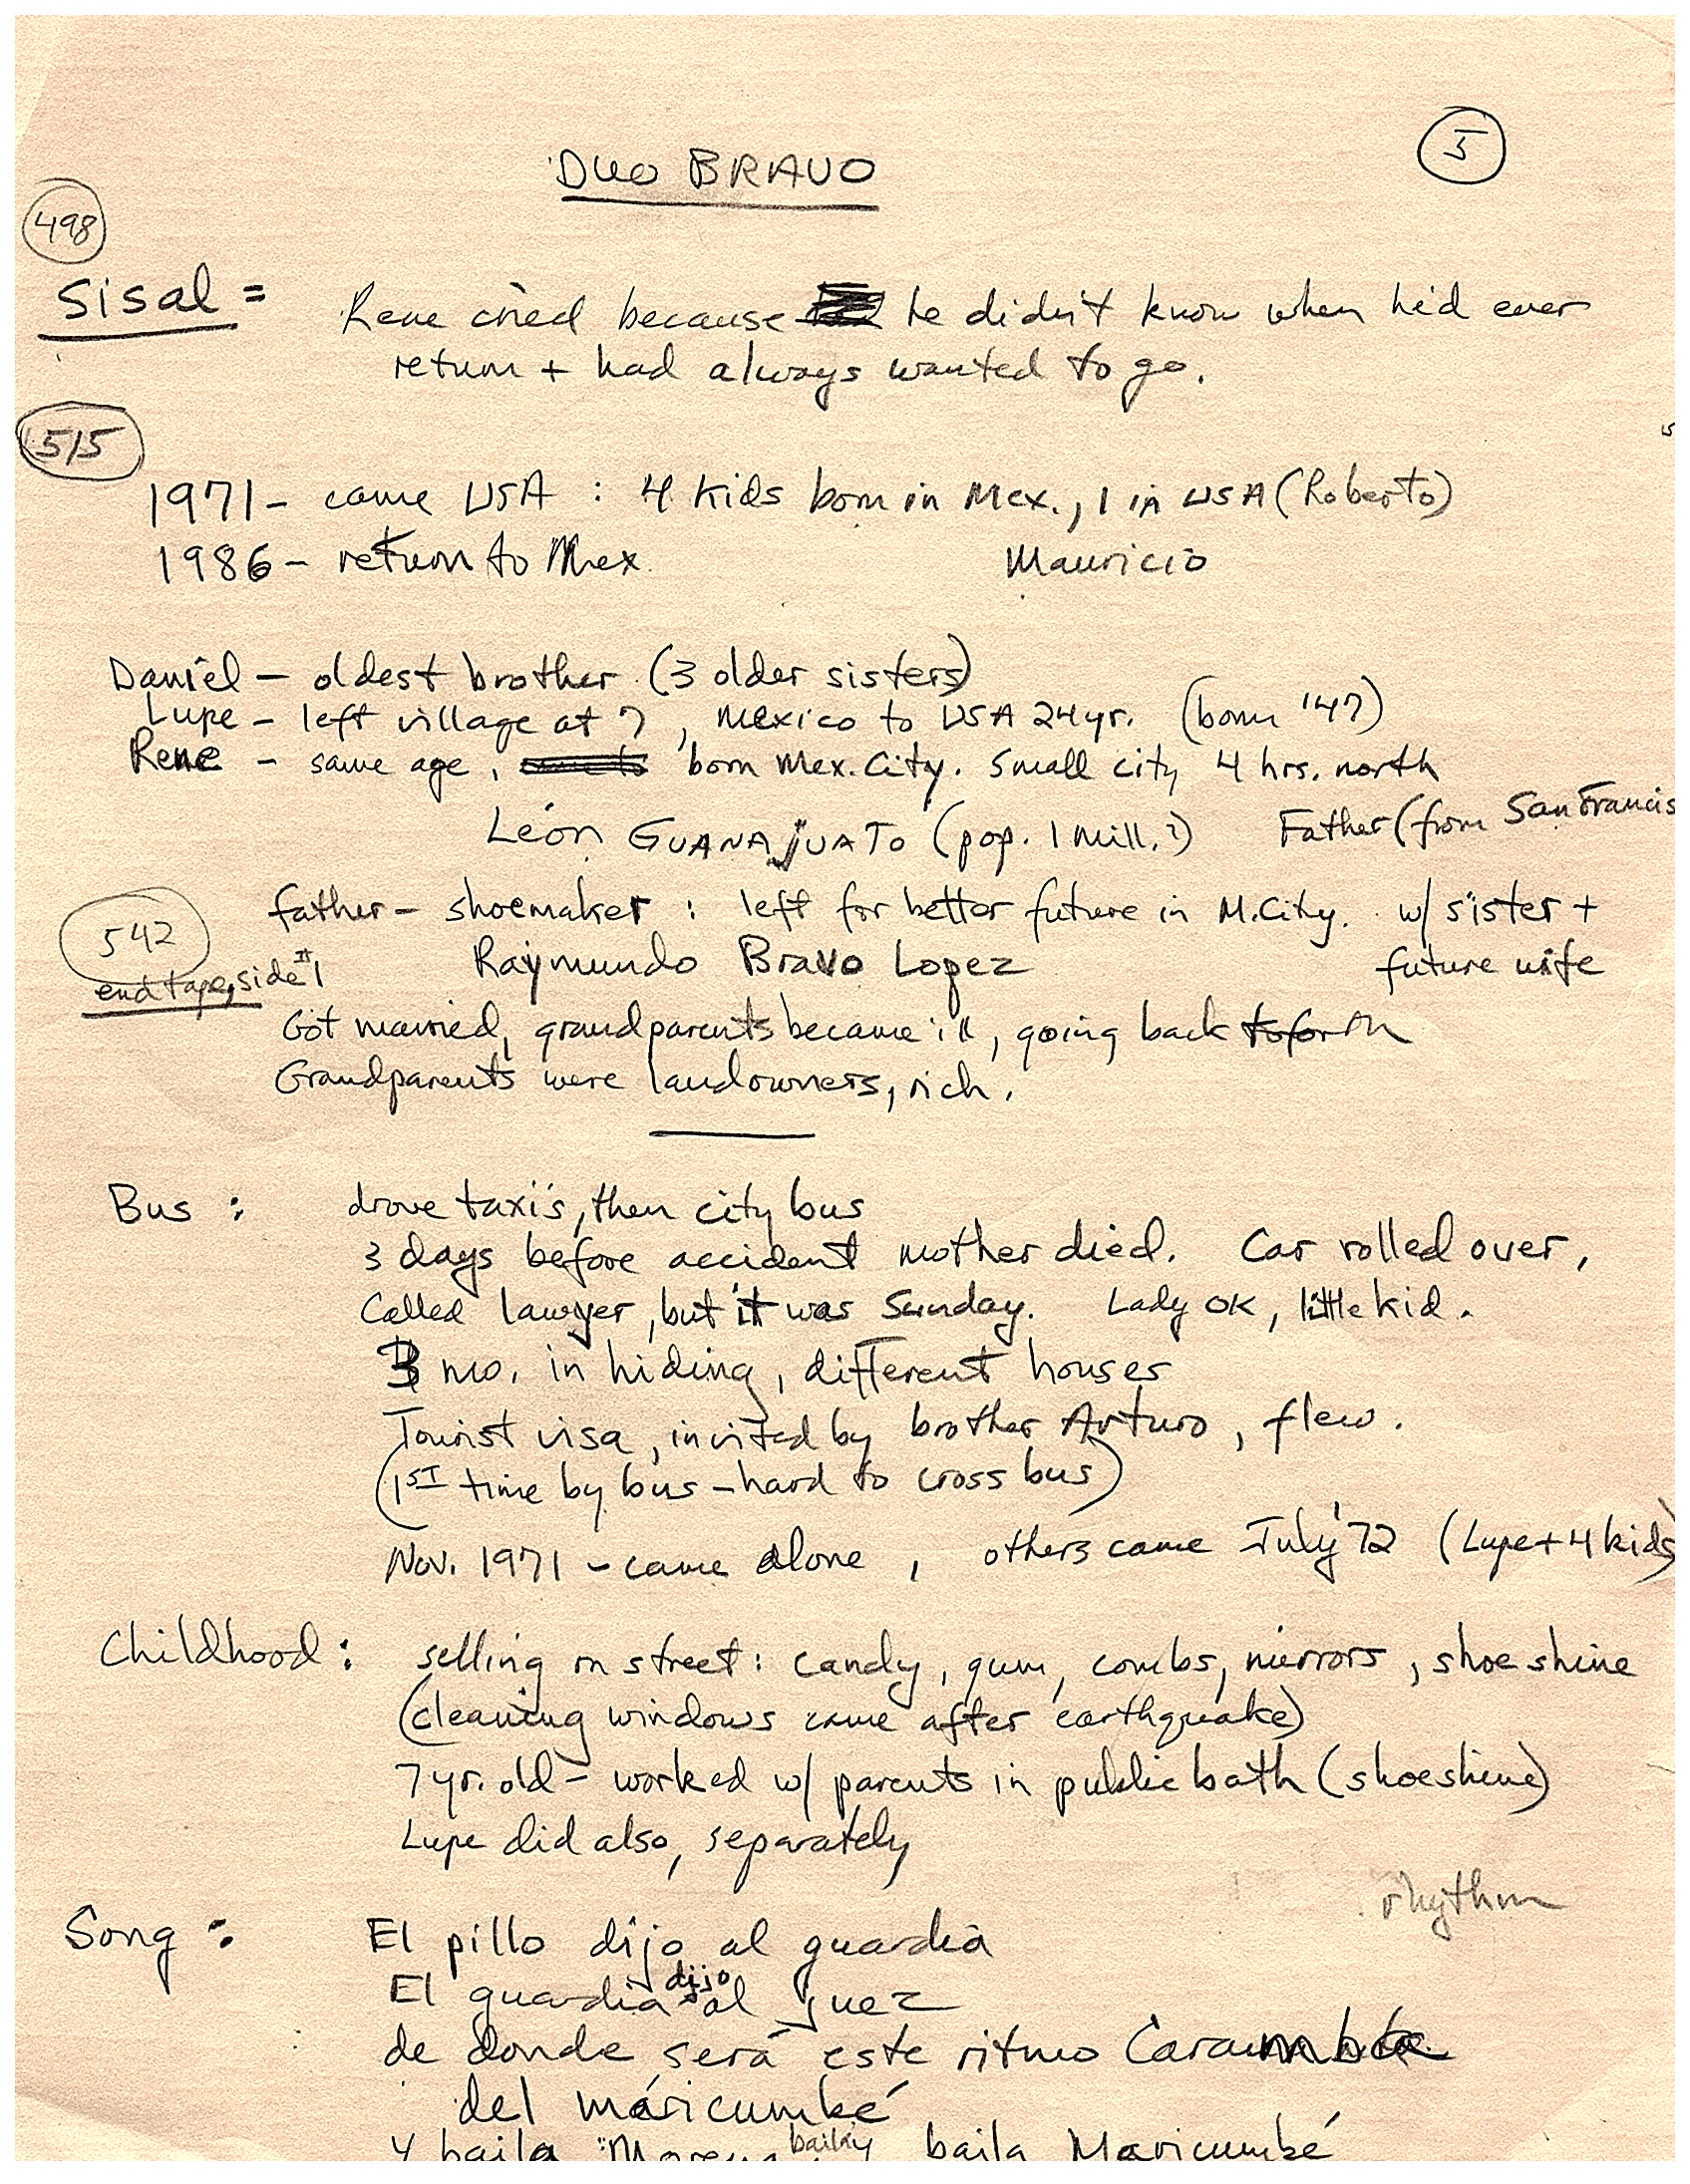 5
DUO BRAVO
498
Sisal = Rene cried because he didn't know when he'd ever
return + had always wanted to go.
515
1971 - came USA : 4 kids born in Mex., 1 in USA (Roberto)
1986 - return to Mex. Mauricio
Daniel - oldest brother (3 older sisters)
Lupe - left village at 7, Mexico to USA 24 yr. (born '47)
Rene - same age, born Mex. City. Small city 4 hrs. north
León GUANAJUATO (pop. 1 mill.?) Father (from San Francis
father - shoemaker : left for better future in M. City. w/ sister +
542
Raymundo Bravo Lopez future wife
end tape, side #1
Got married, grandparents became ill, going back to forth
Grandparents were landowners, rich.
Bus : drove taxis, then city bus
3 days before accident mother died. Car rolled over,
Called lawyer, but it was Sunday. Lady OK, little kid.
3 mo. in hiding, different houses
Tourist visa, invited by brother Arturo, flew.
(1ST time by bus - hard to cross bus)
Nov. 1971 - came alone, others came July '72 (Lupe + 4 kids)
Childhood : selling on street : candy, gum, combs, mirrors, shoe shine
(cleaning windows came after earthquake)
7 yr. old - worked w/ parents in public bath (shoeshine)
Lupe did also, separately
rhythm
Song : El pillo dijo al guardia
El guardia dijo al juez
de donde será este ritmo Caramba
del máricumbé
y baila Morena, baila Maricumbé